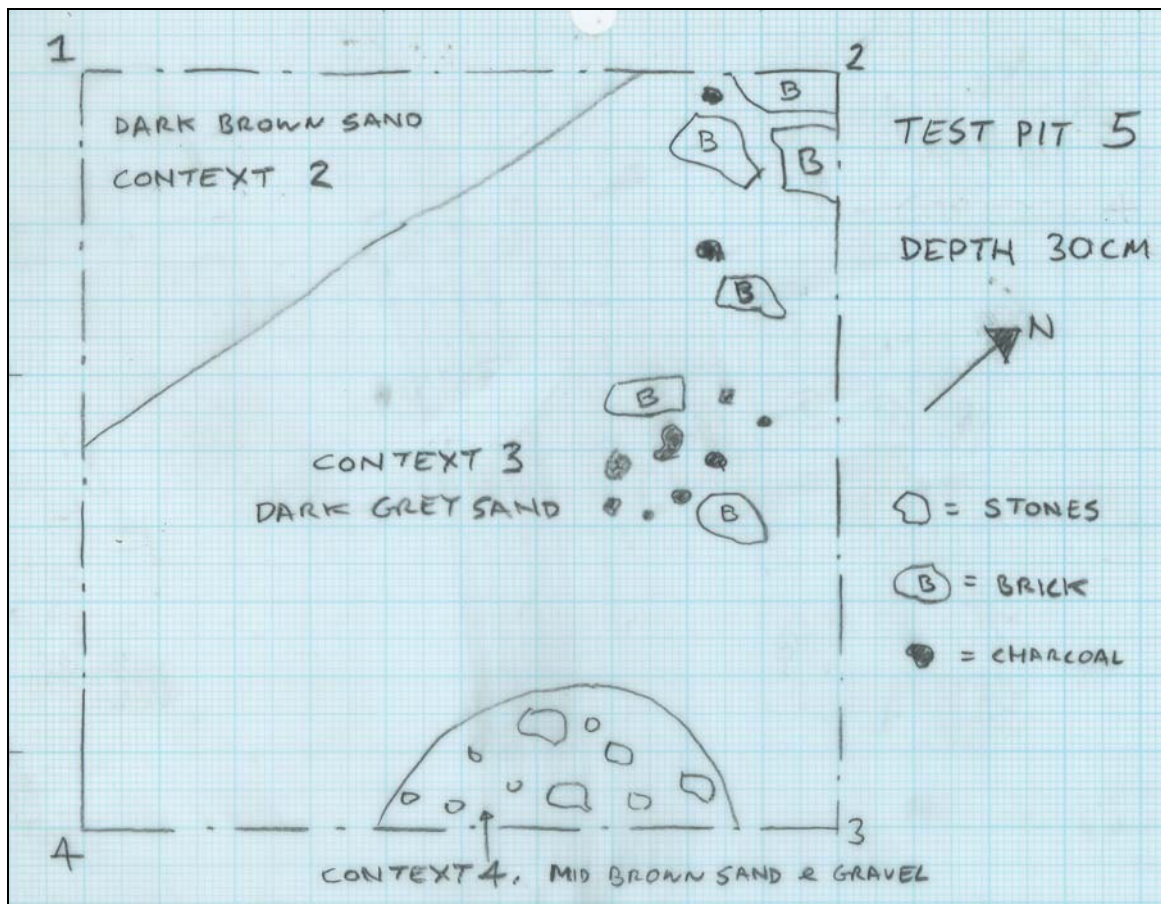 1
2
DARK BROWN SAND
CONTEXT 2
B
B
B
TEST PIT 5
DEPTH 30CM
B
N
B
CONTEXT 3
DARK GREY SAND
B
= STONES
B = BRICK
= CHARCOAL
4
3
CONTEXT 4. MID BROWN SAND & GRAVEL